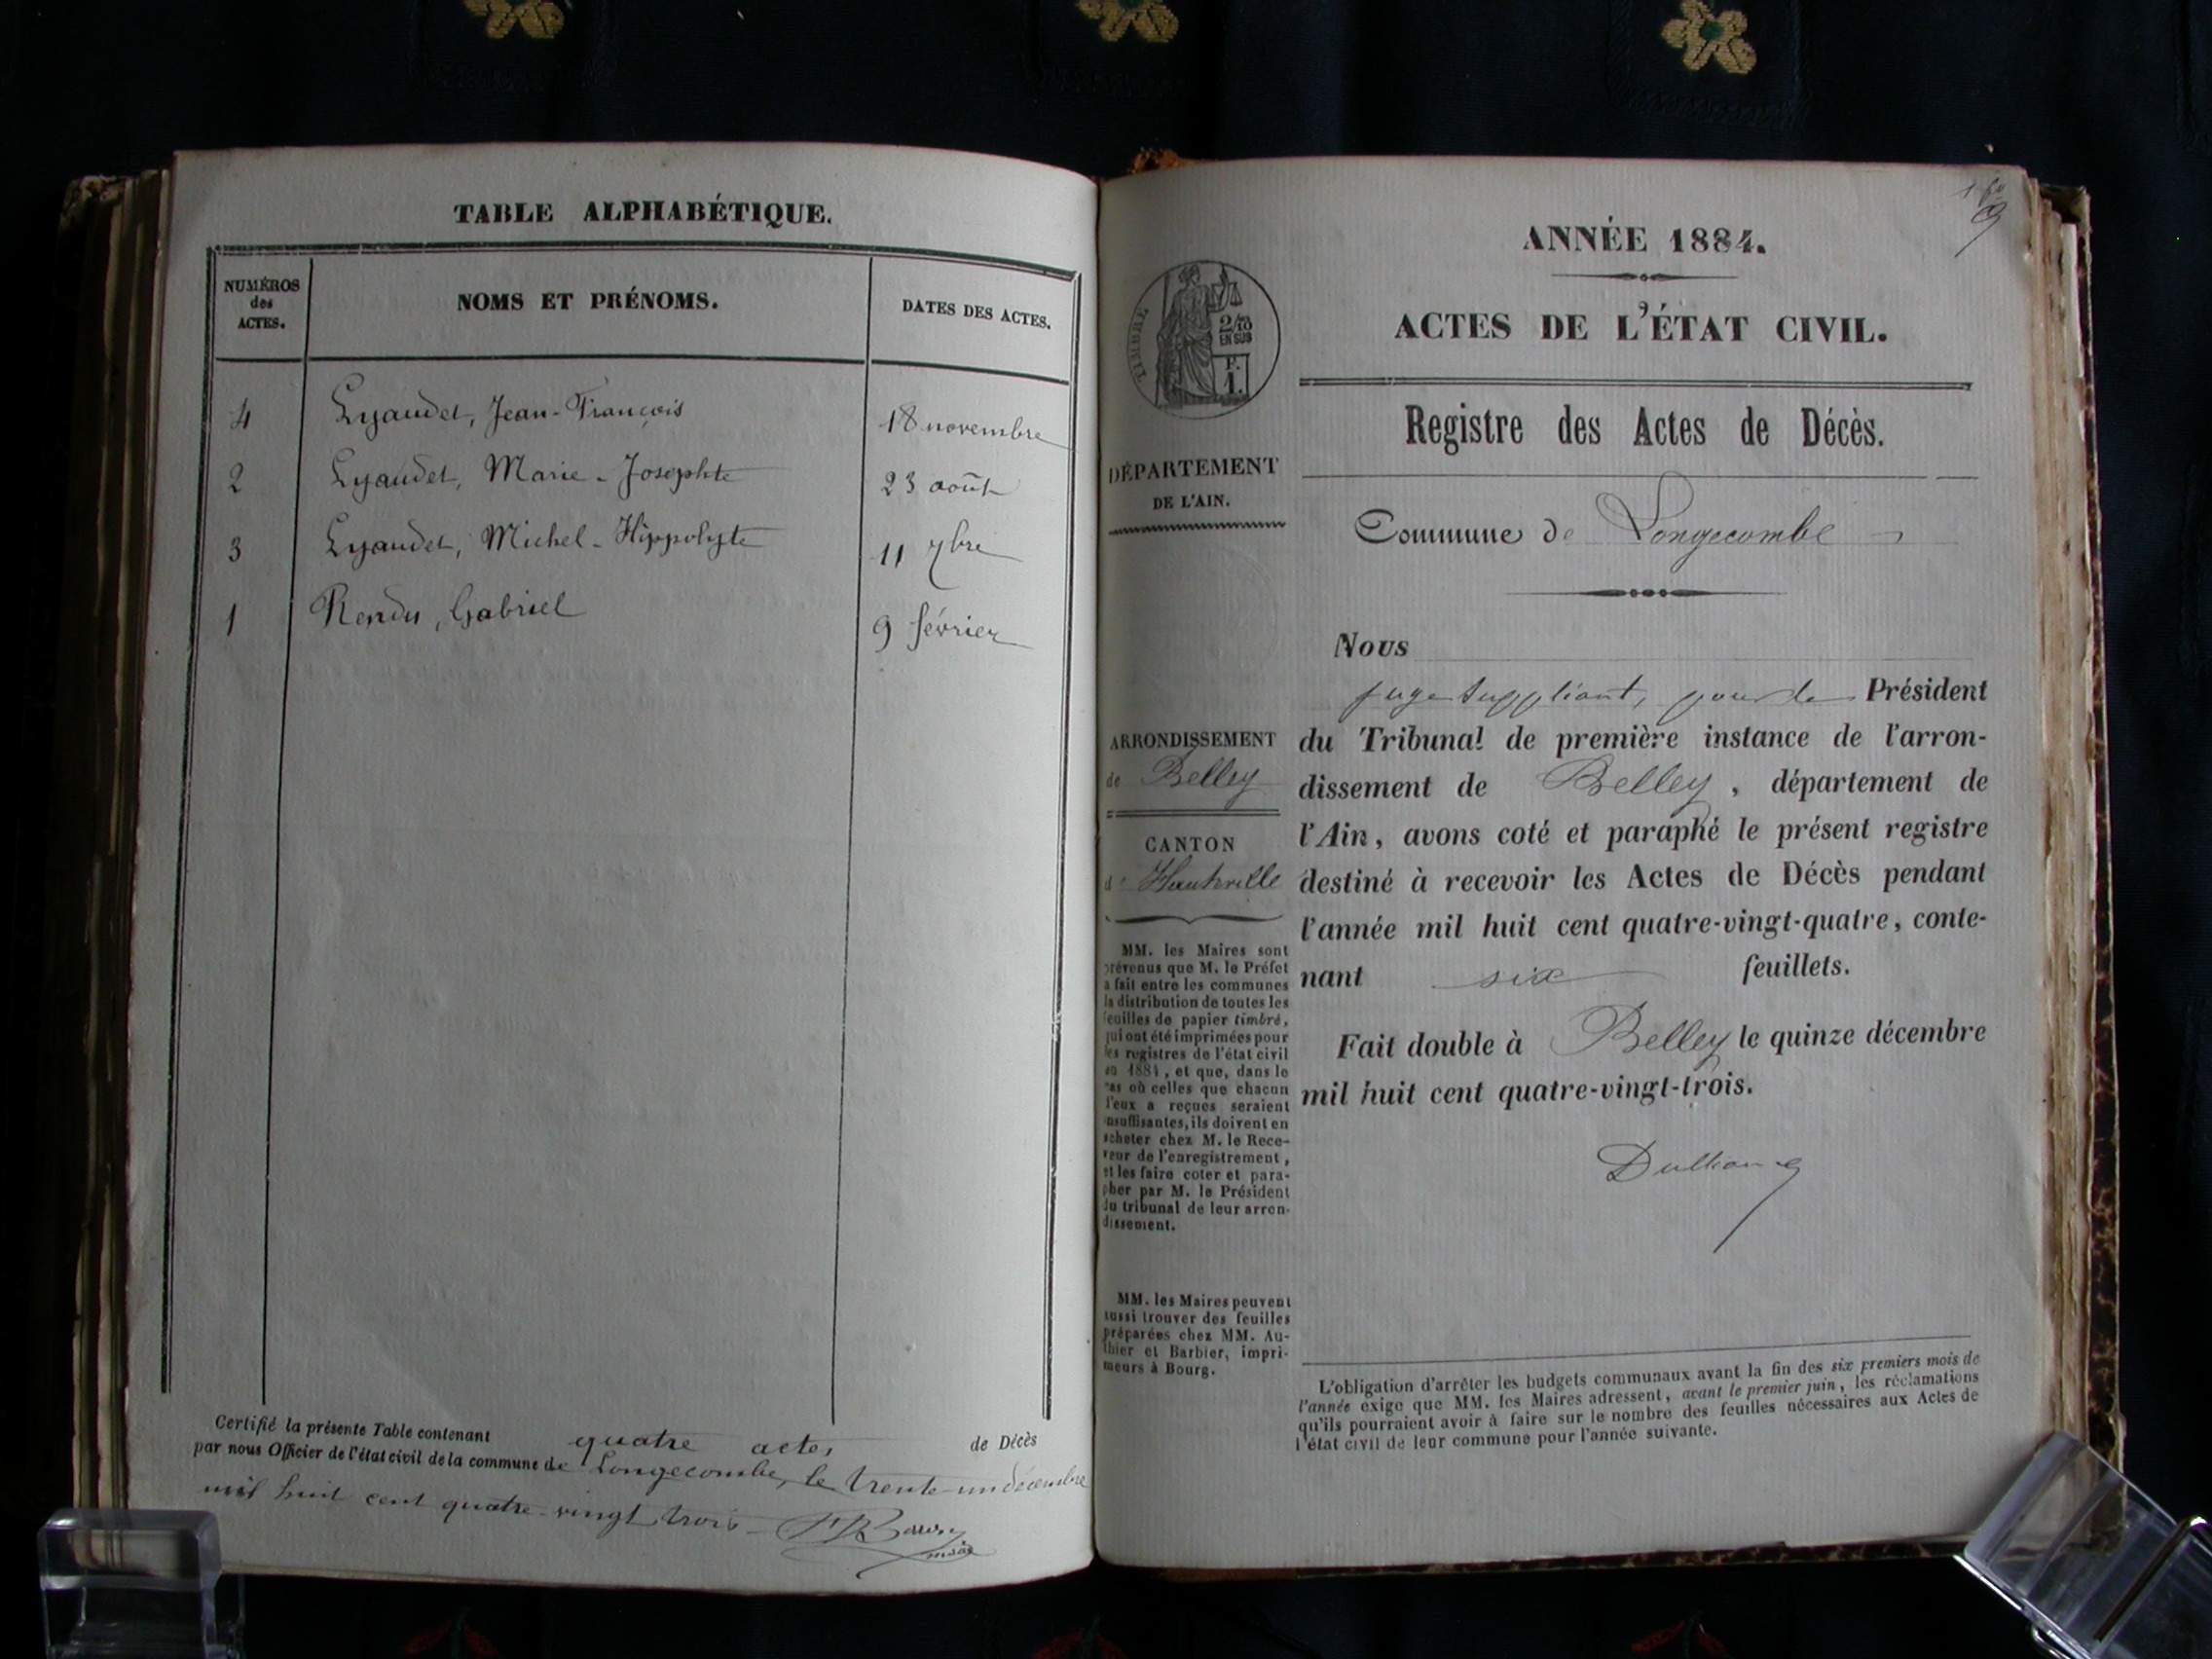 TABLE ALPHABÉTIQUE.
NUMÉROS
des
ACTES.
NOMS ET PRÉNOMS.
DATES DES ACTES.
4 Lyaudet, Jean-François 18 novembre
2 Lyaudet, Marie-Josephte 23 août
3 Lyaudet, Michel-Hippolyte 11 7bre
1 Rendu, Gabriel 9 février
Certifié la présente Table contenant quatre actes de Décès
par nous Officier de l'état civil de la commune de Longecombe, le trente-un décembre
mil huit cent quatre-vingt trois
ANNÉE 1884.
ACTES DE L'ÉTAT CIVIL.
TIMBRE
2/10
EN SUS
F.
1.
DÉPARTEMENT
DE L'AIN.
ARRONDISSEMENT
de Belley
CANTON
d' Hauteville
MM. les Maires sont
prévenus que M. le Préfet
a fait entre les communes
la distribution de toutes les
feuilles de papier timbré,
qui ont été imprimées pour
les registres de l'état civil
en 1884, et que, dans le
cas où celles que chacun
d'eux a reçues seraient
insuffisantes, ils doivent en
acheter chez M. le Rece-
veur de l'enregistrement,
et les faire coter et para-
pher par M. le Président
du tribunal de leur arron-
dissement.
MM. les Maires peuvent
aussi trouver des feuilles
préparées chez MM. Au-
thier et Barbier, impri-
meurs à Bourg.
Registre des Actes de Décès.
Commune de Longecombe
Nous
juge suppléant, pour le Président
du Tribunal de première instance de l'arron-
dissement de Belley, département de
l'Ain, avons coté et paraphé le présent registre
destiné à recevoir les Actes de Décès pendant
l'année mil huit cent quatre-vingt-quatre, conte-
nant six feuillets.
Fait double à Belley le quinze décembre
mil huit cent quatre-vingt-trois.
L'obligation d'arrêter les budgets communaux avant la fin des six premiers mois de
l'année exige que MM. les Maires adressent, avant le premier juin, les réclamations
qu'ils pourraient avoir à faire sur le nombre des feuilles nécessaires aux Actes de
l'état civil de leur commune pour l'année suivante.